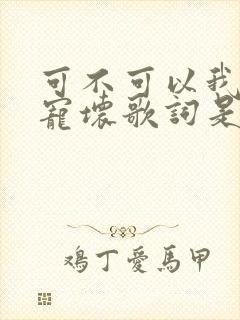 可不可以我
寵壞歌詞是
鴉丁愛馬甲